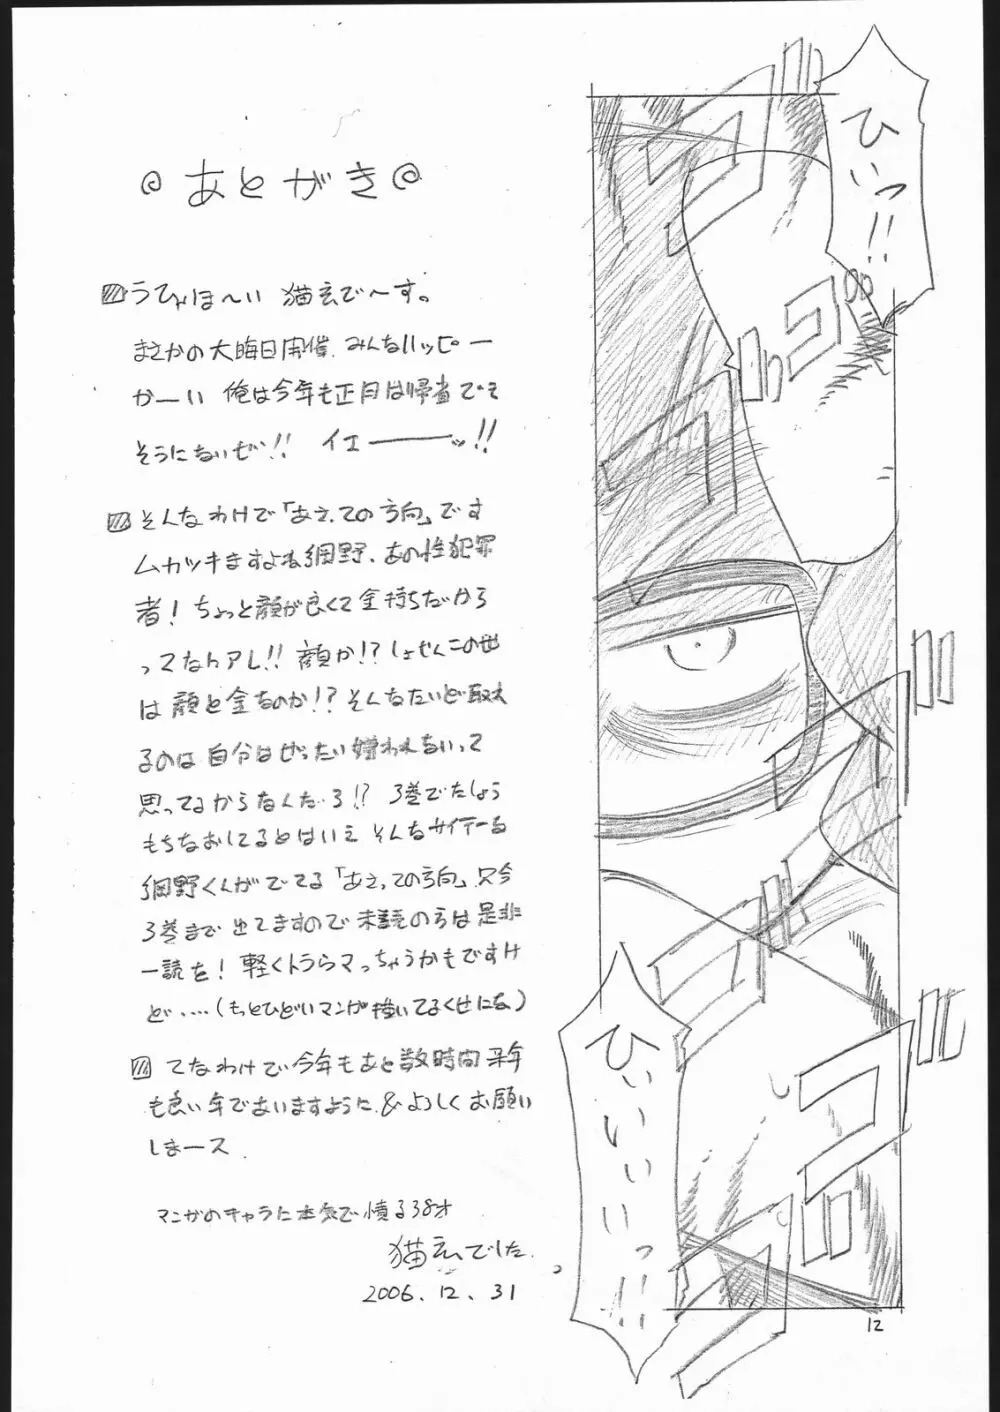 あとがき
うひゃほ〜い 猫玄で〜す。
まさかの大晦日開催、みんなハッピー
かーい 俺は今年も正月は帰省でき
そうにないぜ!! イエーーーッ!!
そんなわけで「あえっての方向」です
ムカツキますよね網野、あの性犯罪
者! ちょっと顔が良くて金持ちだから
ってなんアレ!! 顔か!? しょせんこの世
は顔と金なのか!? そんなたいど取れ
るのは自分はぜったい嫌われないって
思ってるからなんだろ!? 3巻でたしょう
もちなおしてるとはいえ そんなサイテーな
網野くんがでてる「あさっての方向」只今
3巻まで出てますので未読の方は是非
一読を! 軽くトラウマっちゃうかもですけ
ど‥‥(もっとひどいマンガ描いてるくせにな)
てなわけで今年もあと数時間 来年
も良い年でありますように & よろしくお願い
しまース
マンガのキャラに本気で憤る38才
猫玄でした。
2006.12.31
ひいっ!!
ひいいいいっ!!
12